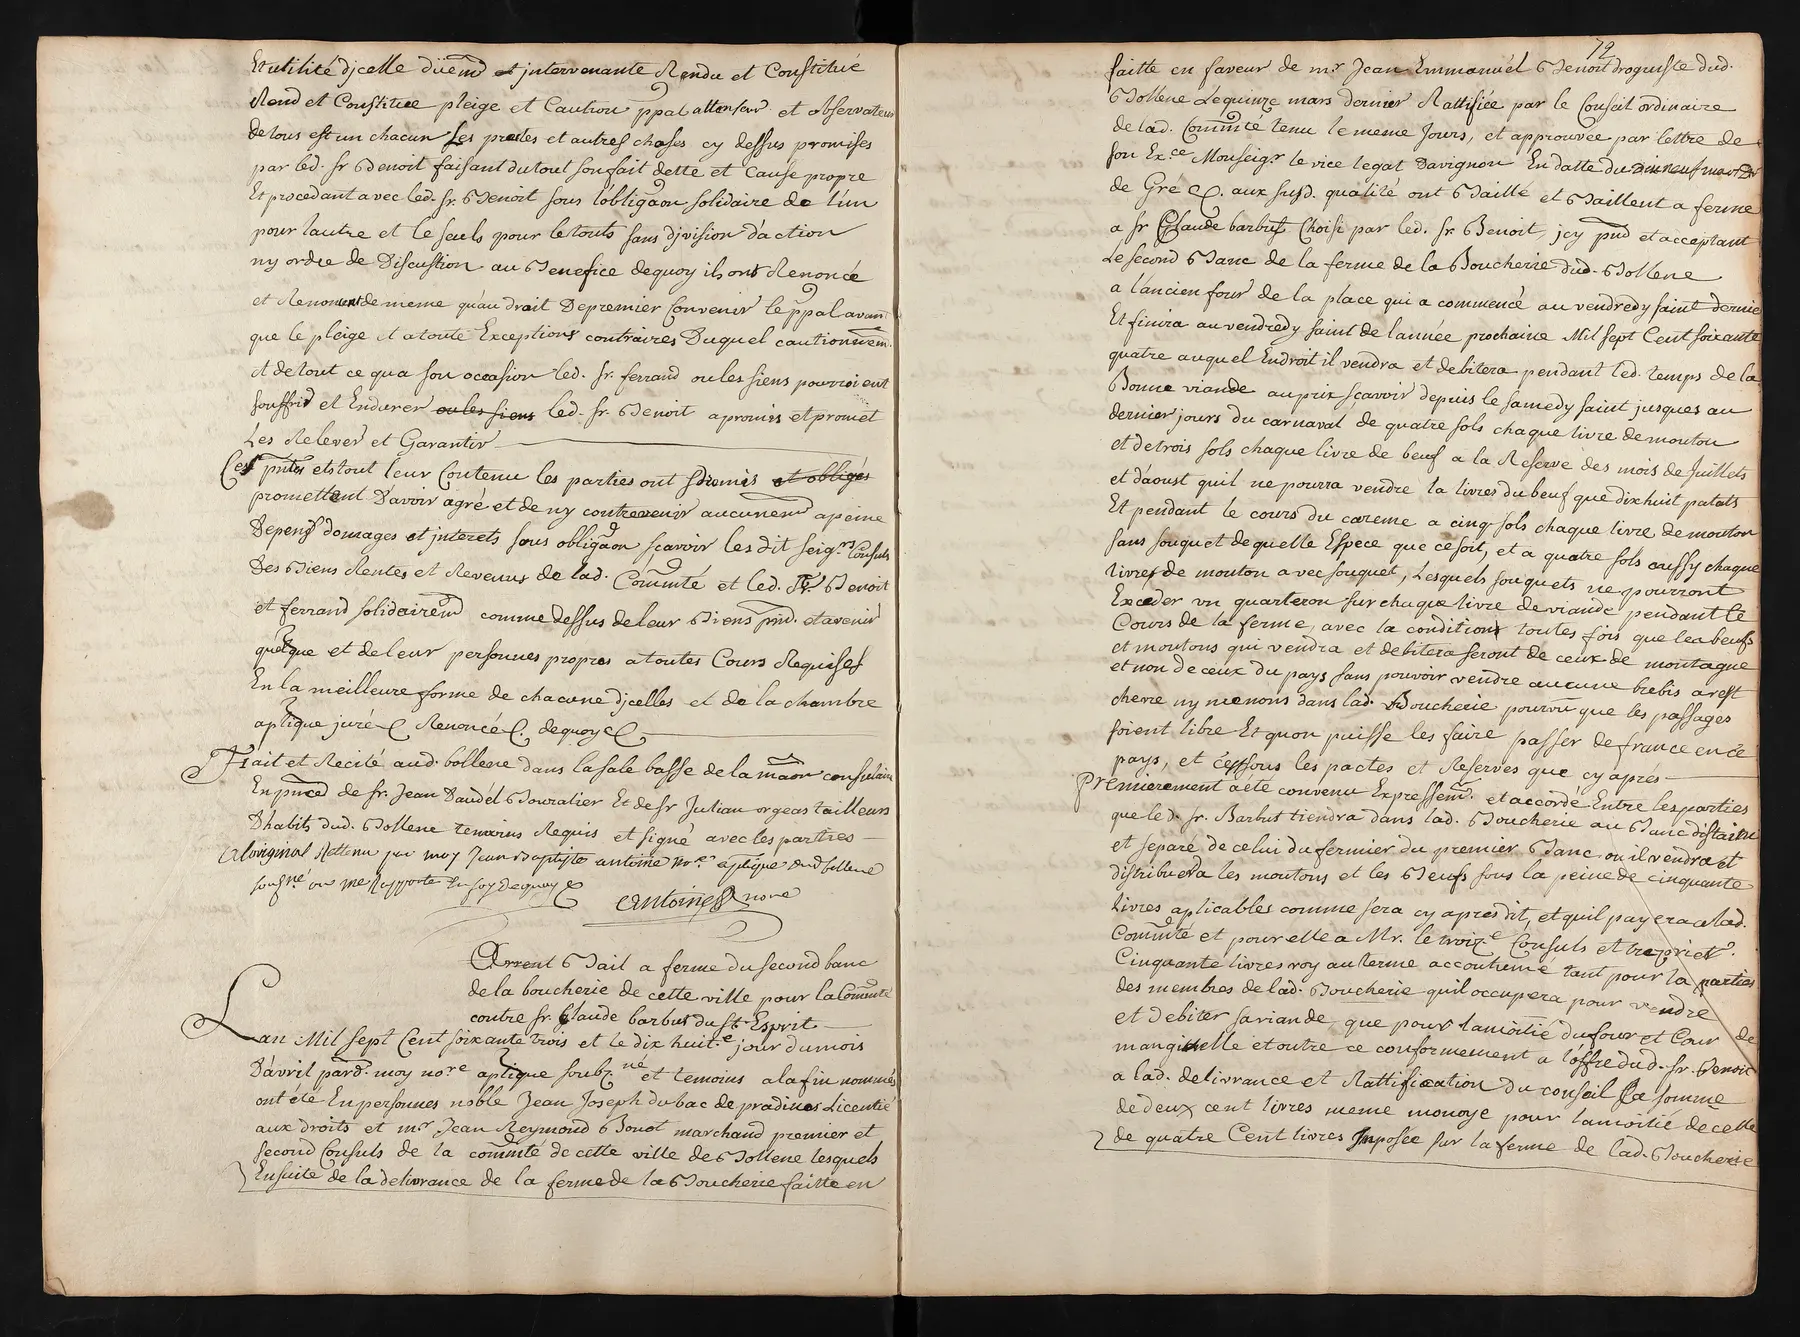 Et utilité djcelle düem̄ et jntervenante Rendu et Constitué
Rend et Constitüe pleige et Caution p̄pal attenseur et observateur
de tous est un chacun Les pactes et autres choses cy dessus promises
par led. sr Benoit faisant du tout son fait dette et Cause propre
Et procedant avec led. sr. Benoit sous l'obligãon solidaire de l'un
pour lautre et le seuls pour le touts sans djvision d'action
ny ordre de Discution au Benefice dequoy ils ont Renoncé
et Renoncent de meme qu'au droit De premier Convenir le p̄pal avant
que le pleige et a toute Exceptions contraires Duquel cautionnem.
et de tout ce qu a son occasion led. sr. ferrand ou les siens pourroient
souffrir et Endurer ou les siens led. Sr. Benoit a promis et promet
Les Relever et Garantir
Ces p̄ntes et tout leur Contenu les parties ont soumis et obligés
promettent D'avoir agré et de ny contrevenir aucunem̄ a peine
Depens domages et jnterets sous obligãon scavoir les dit seigrs Consuls
Des Biens Rentes et Revenus de lad. Com̄té et led. Sr. Benoit
et ferrand solidairem̄ comme dessus de leur Biens p̄nt. et avenir
quelque et de leur personnes propres a toutes Cours Requises
En la meilleure forme de chacune djcelles et de la chambre
aptique juré &. Renoncé &. dequoy &.
Fait et Recité aud. bollene dans la sale basse de la maãon consulaire
En p̄nced de sr. Jean Daudél Bouralier Et de sr Julian orgeas tailleurs
D'habits dud. Bollene temoins Requis et signé avec les parties
a loriginal Rettenu par moy Jean Baptiste antoine nre aptique dud bollene
sousné ou me Rapporte En foy dequoy &
Antoine nore
Arrent Bail a ferme du second banc
de la boucherie de cette ville pour la Com̄uté
contre sr. Glaude barbut du st. Esprit
Lan Mil sept Cent soixante trois et le dix huite jour du mois
D'avril pard. moy nore aptique soubzné et temoins a la fin nommés
ont été En personnes noble Jean Joseph du bac de pradines Licentié
aux droits et mr Jean Reymond Bouot marchand premier et
second Consuls de la com̄uté de cette ville de Bollene lesquels
Ensuite de la delivrance de la ferme de la Boucherie faitte en
72
faitte en faveur de mr Jean Emmanuël Benoit droguiste dud.
Bollene Le quinze mars dernier Rattifiée par le Conseil ordinaire
de lad. Com̄uté tenu le meme Jours, et approuvée par lettre de
son Exce. Monseigr le vice legat Davignon En datte du dix neuf mars Dr
de Gré &. aux susd. qualité ont Baillé et Baillent a ferme
a sr Glaude barbut Choisi par led. sr. Benoit, jcy p̄nt et acceptant
Le second Banc de la ferme de la Boucherie dud. Bollene
a l'ancien four de la place qui a commencé au vendredy saint dernier
Et finira au vendredy saint de l'année prochaine Mil sept Cent soixante
quatre auquel Endroit il vendra et debitera pendant led. temps de la
Bonne viande au prix scavoir depuis le samedy saint jusques au
dernier jours du carnaval de quatre sols chaque livre de mouton
et de trois sols chaque livre de beuf a la Reserve des mois de Juillets
et d'aoust qu'il ne pourra vendre la livres du beuf que dix huit patats
Et pendant le cours du careme a cinq sols chaque livre de mouton
sans souquet de quelle Espece que ce soit, et a quatre sols aussy chaque
livres de mouton avec souquet, Lesquels souquets ne pourront
Exceder un quarteron sur chaque livre de viande pendant le
Cours de la ferme, avec la condition toutes fois que les beufs
et moutons qui vendra et debitera seront de ceux de montagne
et non de ceux du pays sans pouvoir vendre aucune brebis arest
chevre ny menons dans lad. Boucherie pourvu que les passages
soient libre Et quon puisse les faire passer de france en ce
pays, et c'est sous les pactes et Reserves que cy aprés
Premierement a été convenu Expressem̄. et accordé Entre les parties
que led. sr. Barbut tiendra dans lad. Boucherie au Banc distaint
et separé de celui du fermier du premier Banc ou il vendra et
distribuera les moutons et les Beufs sous la peine de cinquante
livres aplicables comme sera cy apres dit, et quil payera a lad.
Com̄uté et pour elle a Mr. le troize Consuls et
Cinquante livres roy au terme accoutumé tant pour la parties
des membres de lad. Boucherie quil occupera pour vendre
et debiter sa viande que pour la moitié du four et Cour de
manganelle et outre ce conformement a l'offre dud. sr. Benoit
a lad. delivrance et Rattification du conseil La somme
de deux cent livres meme monoye pour la moitié de celle
de quatre Cent livres Imposée sur la ferme de lad. Boucherie